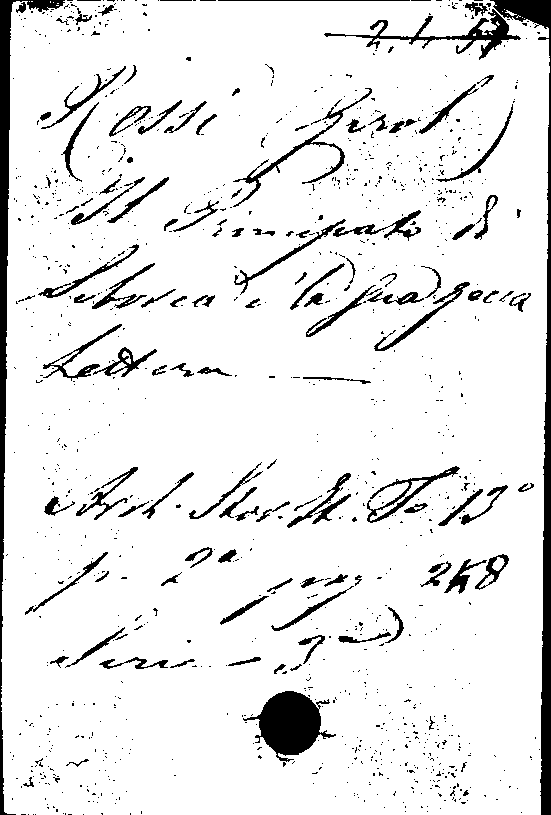 2.4.57
Rossi (Girol.)
Il Principato di
Seborca e la sua zecca
Lettera —
Arch. Stor. It. To 13°
p. 2ª pag. 248
Serie - 3ª